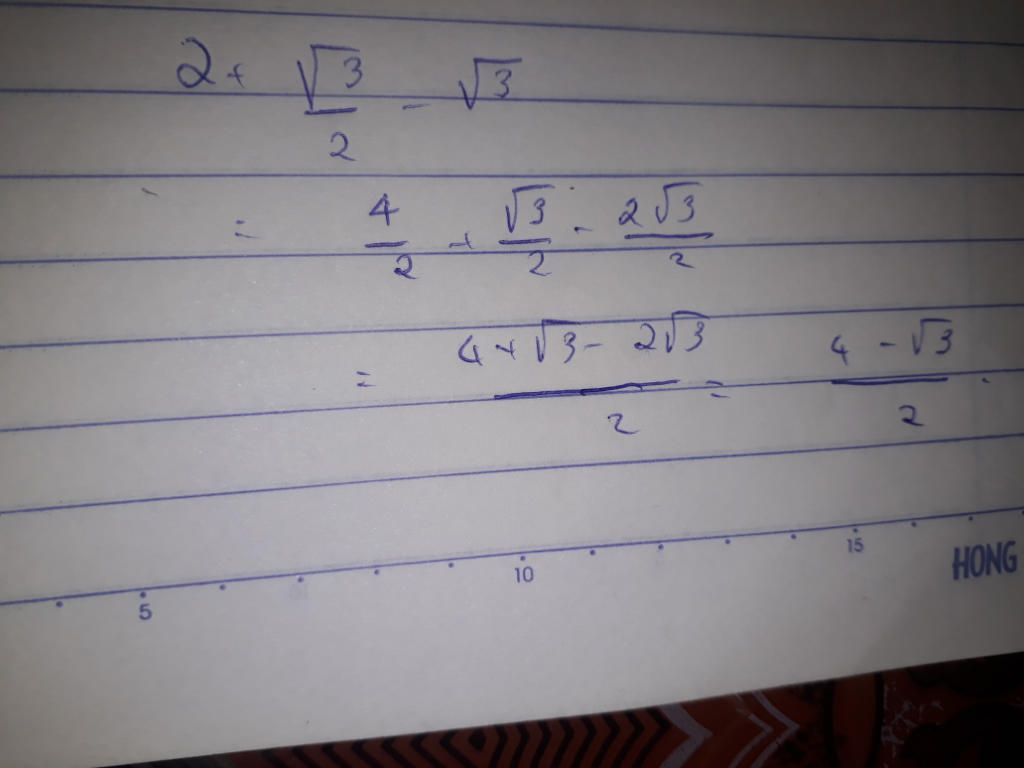 2 + √3/2 - √3
= 4/2 + √3/2 - 2√3/2
= 4+√3 - 2√3/2 = 4 - √3/2 .
5 10 15 HONG